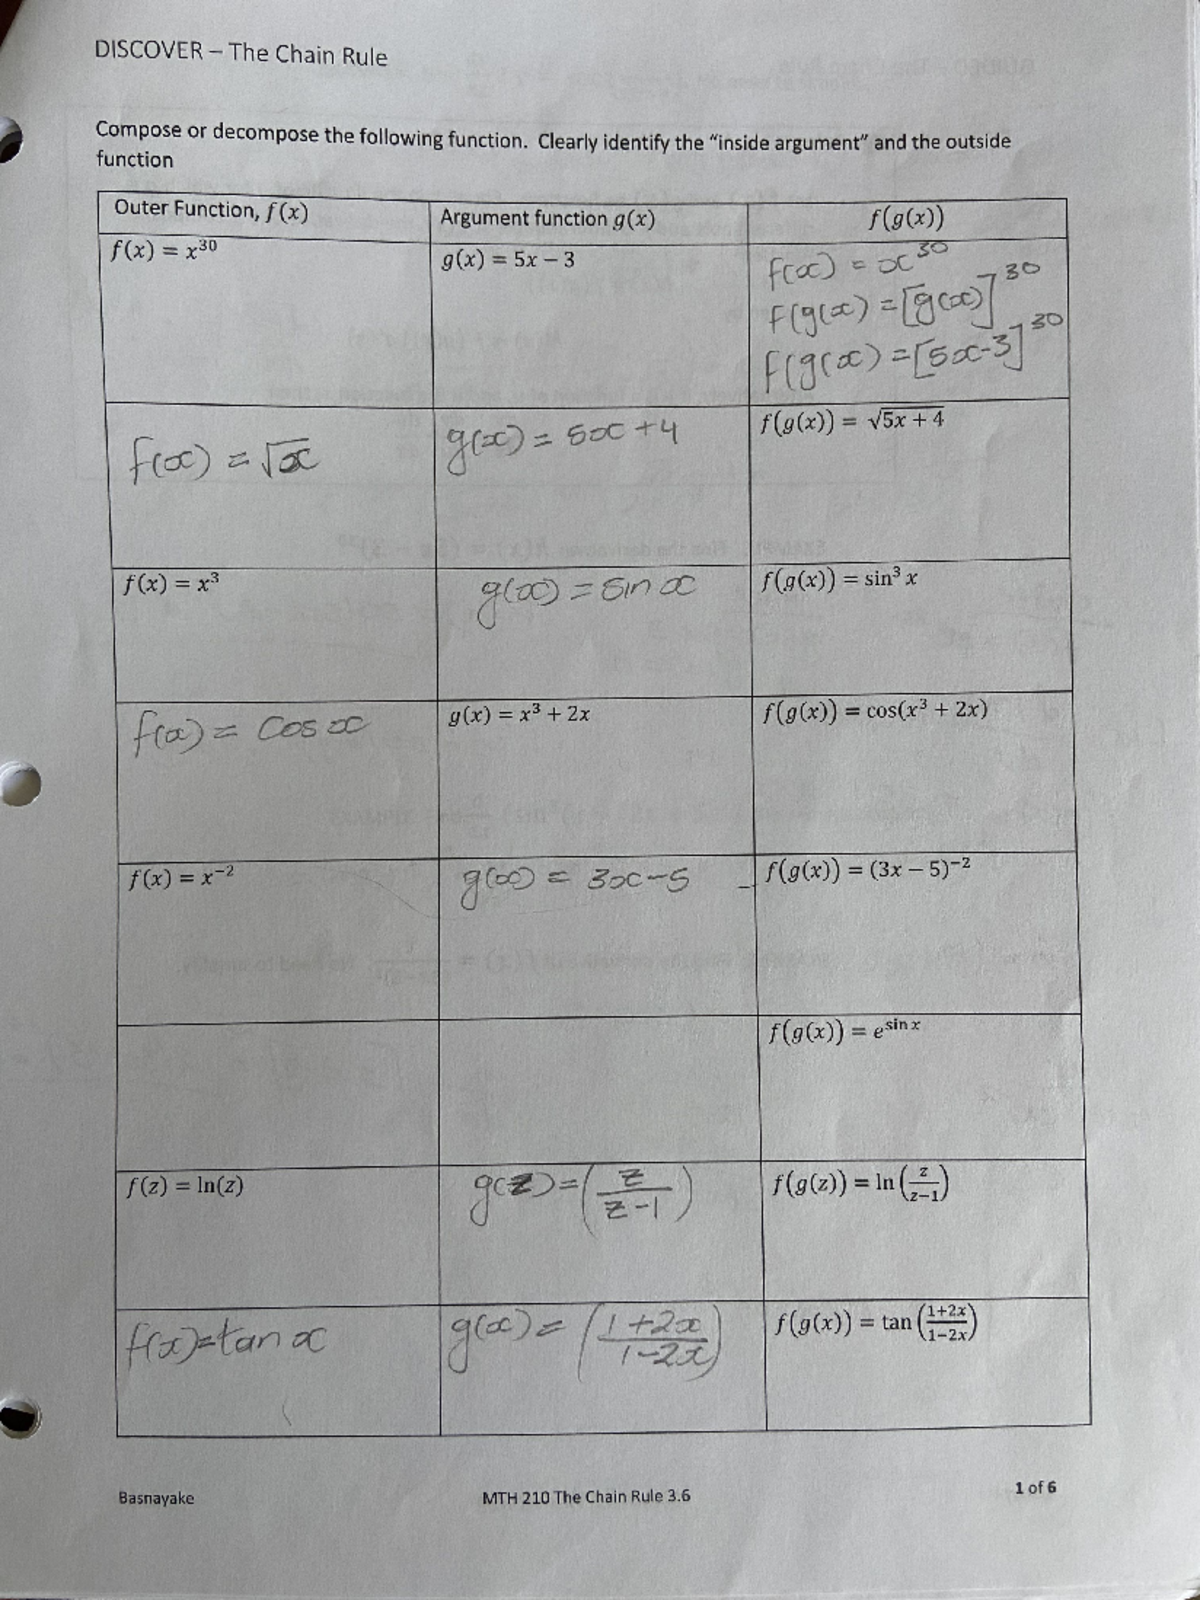 DISCOVER – The Chain Rule
Compose or decompose the following function. Clearly identify the “inside argument” and the outside
function
Outer Function, f(x)
Argument function g(x)
f(g(x))
f(x) = x³⁰
g(x) = 5x – 3
f(x) = x³⁰
f(g(x) = [g(x)]³⁰
f(g(x) = [5x-3]³⁰
f(x) = √x
g(x) = 5x + 4
f(g(x)) = √(5x + 4)
f(x) = x³
g(x) = sin x
f(g(x)) = sin³ x
f(x) = Cos x
g(x) = x³ + 2x
f(g(x)) = cos(x³ + 2x)
f(x) = x⁻²
g(x) = 3x-5
f(g(x)) = (3x – 5)⁻²
f(g(x)) = e^(sin x)
f(z) = ln(z)
g(z) = (z/(z-1))
f(g(z)) = ln (z/(z−1))
f(x)=tan x
g(x) = ((1+2x)/(1-2x))
f(g(x)) = tan ((1+2x)/(1−2x))
Basnayake
MTH 210 The Chain Rule 3.6
1 of 6